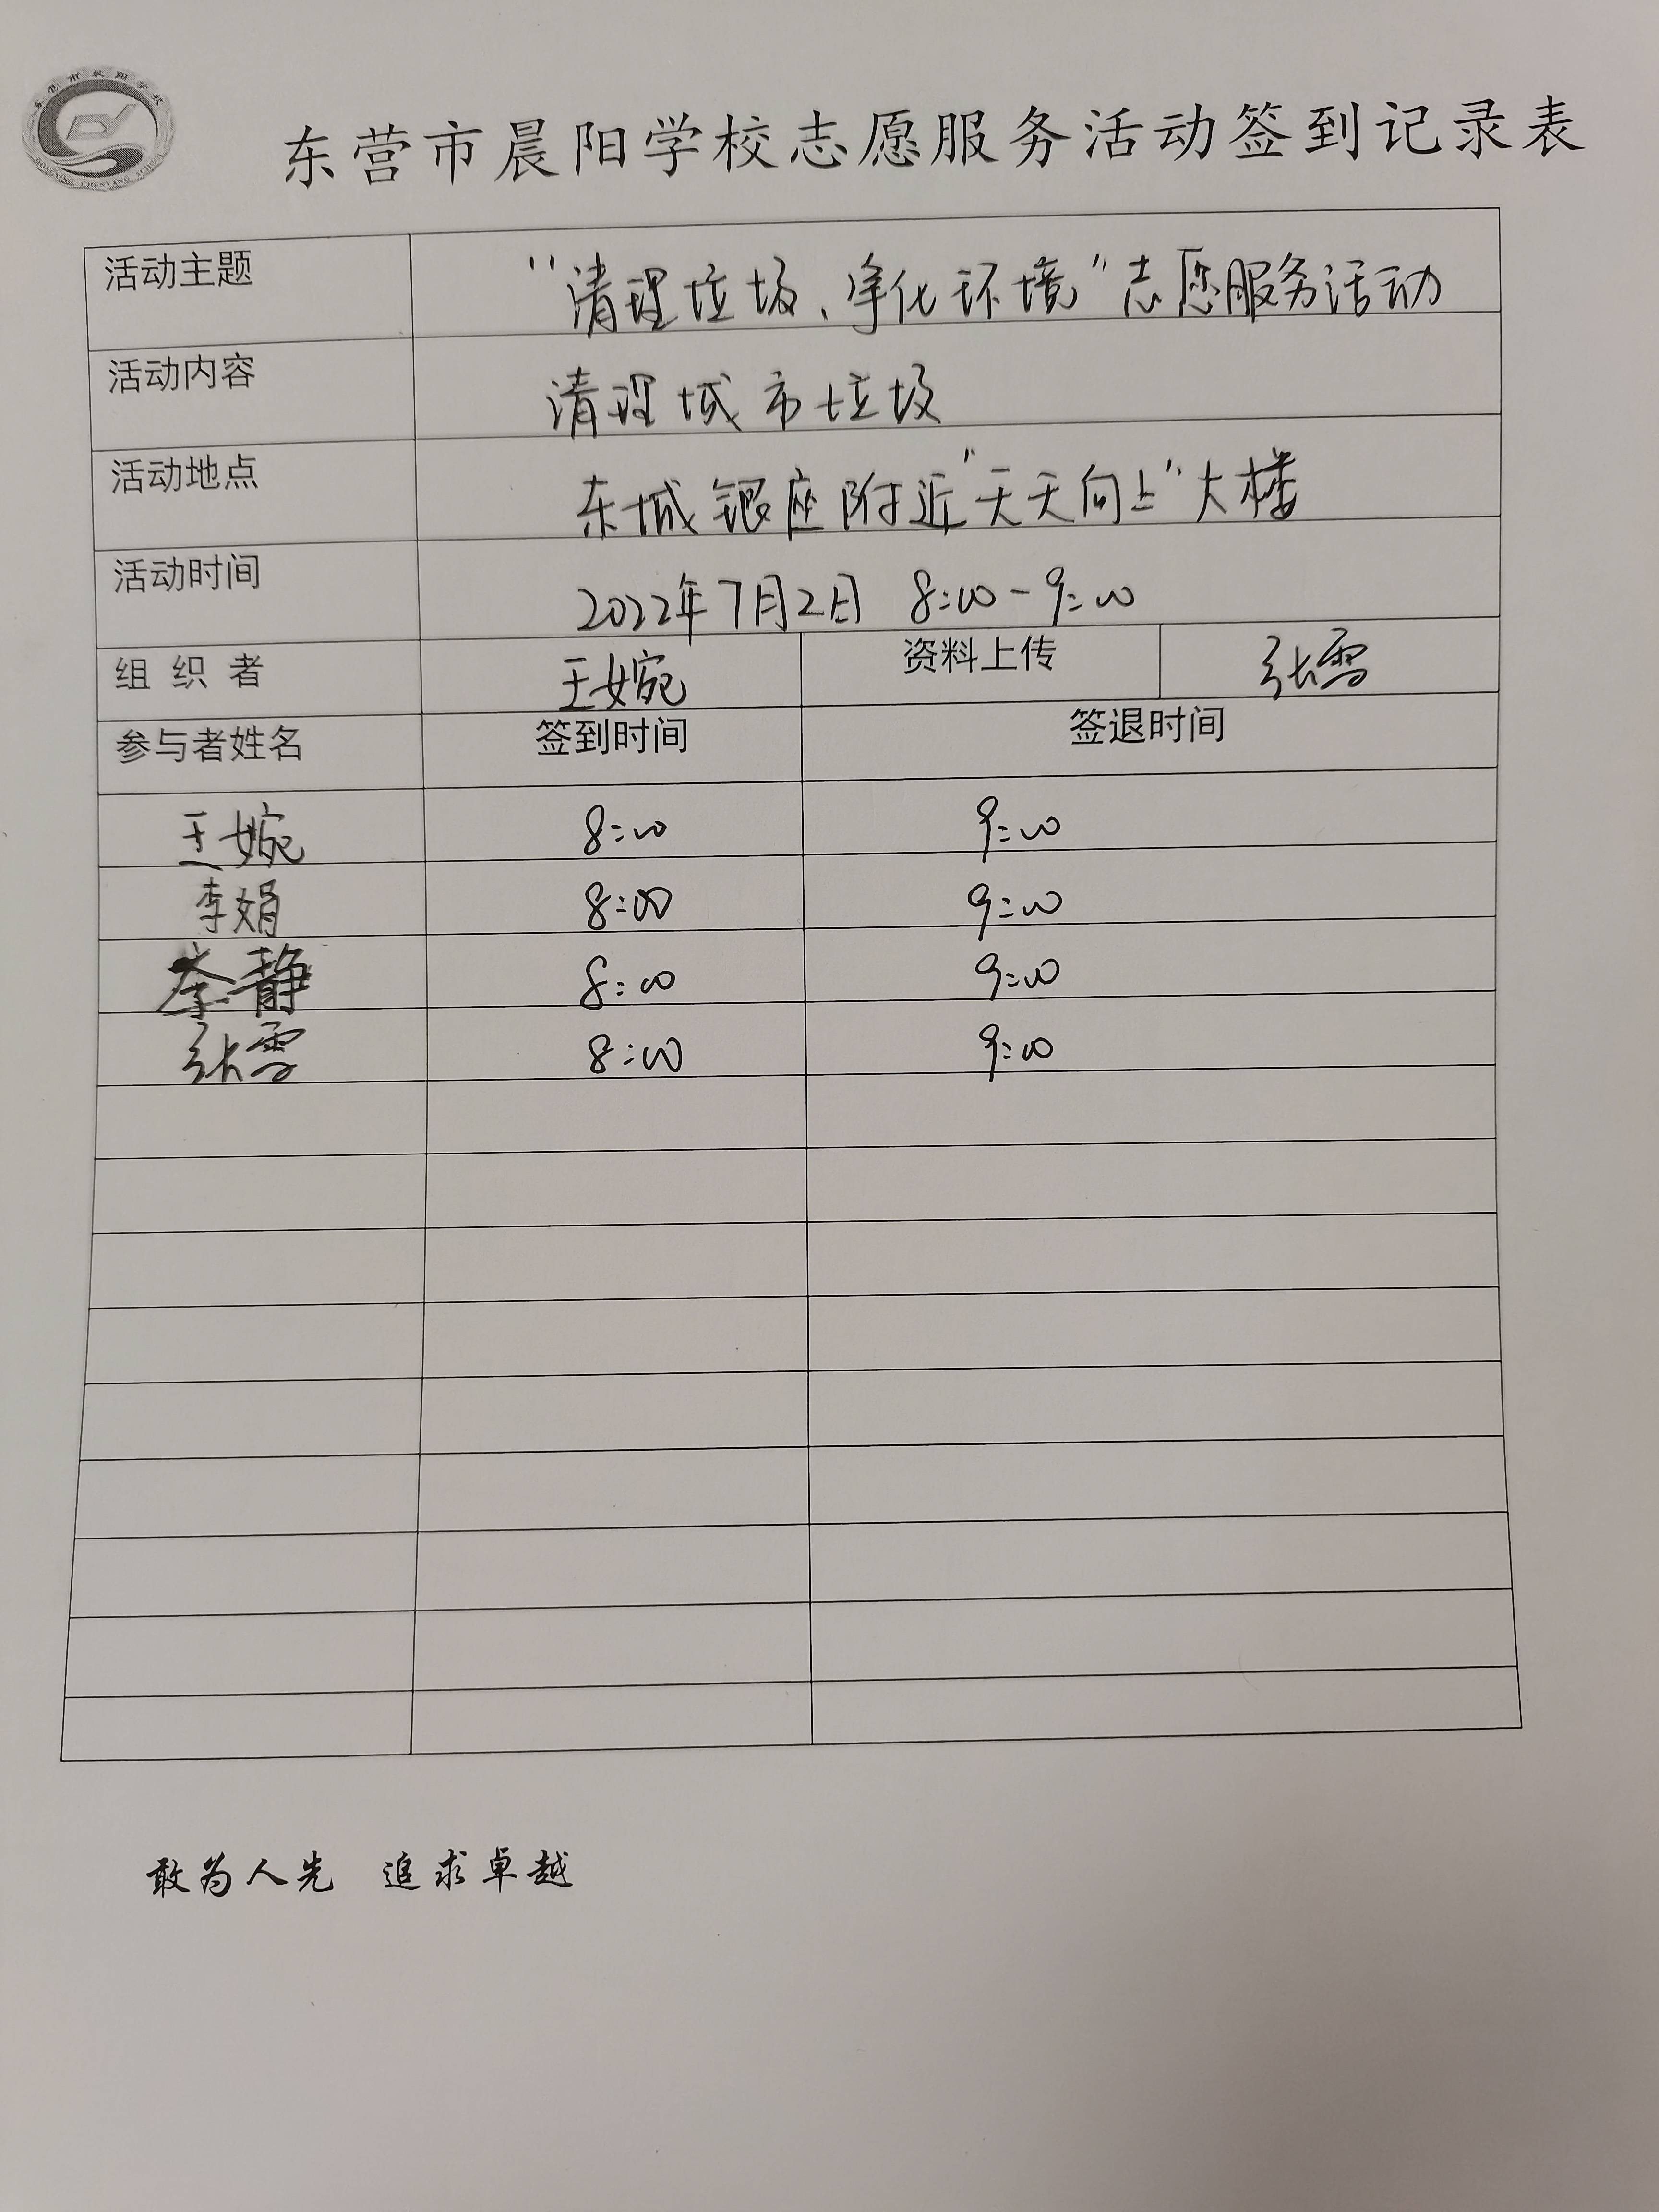 东营市晨阳学校志愿服务活动签到记录表
活动主题 “清理垃圾、净化环境”志愿服务活动
活动内容 清理城市垃圾
活动地点 东城银座附近“天天向上”大楼
活动时间 2022年7月2日 8:00-9:00
组织者 王婉 资料上传 张雪
参与者姓名 签到时间 签退时间
王婉 8:00 9:00
李娟 8:00 9:00
李静 8:00 9:00
张雪 8:00 9:00
敢为人先 追求卓越